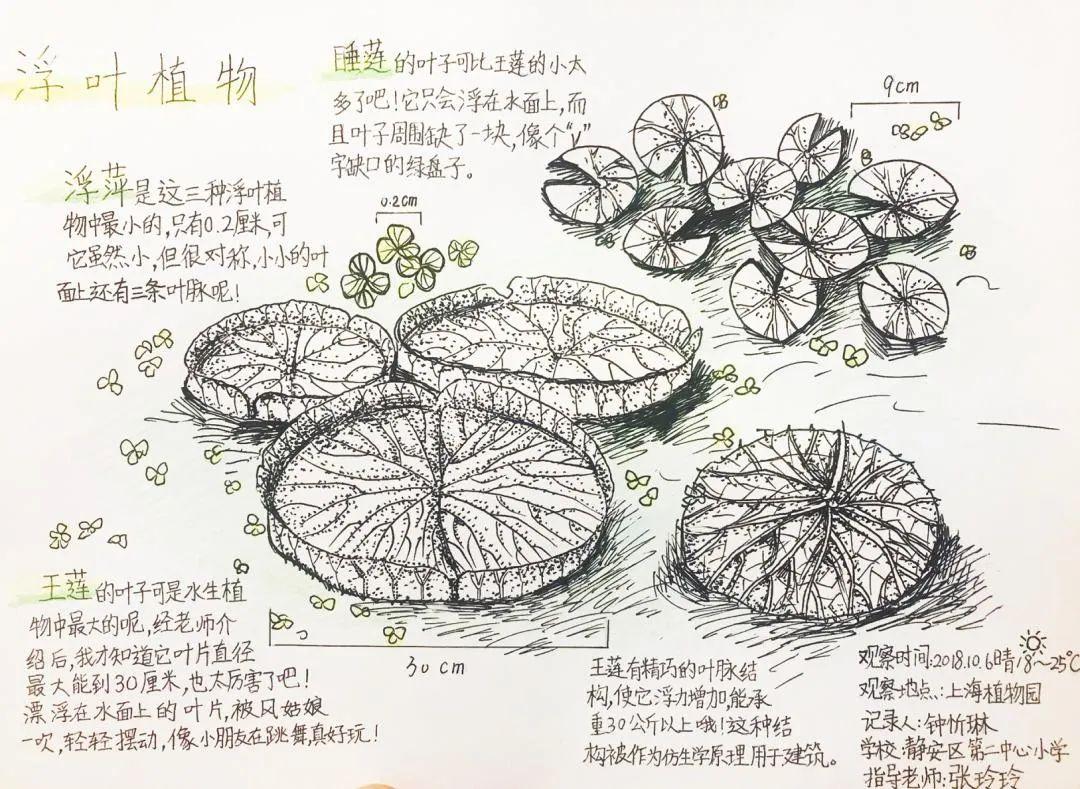 浮叶植物
睡莲的叶子可比王莲的小太
多了吧！它只会浮在水面上，而
且叶子周围缺了一块，像个“V”
字缺口的绿盘子。
9cm
浮萍是这三种浮叶植
物中最小的，只有0.2厘米，可
它虽然小，但很对称，小小的叶
面上还有三条叶脉呢！
0.2cm
王莲的叶子可是水生植
物中最大的呢，经老师介
绍后，我才知道它叶片直径
最大能到30厘米，也太厉害了吧！
漂浮在水面上的叶片，被风姑娘
一吹，轻轻摆动，像小朋友在跳舞真好玩！
30cm
王莲有精巧的叶脉结
构，使它浮力增加，能承
重30公斤以上哦！这种结
构被作为仿生学原理用于建筑。
观察时间：2018.10.6晴18~25℃
观察地点：上海植物园
记录人：钟忻琳
学校：静安区第二中心小学
指导老师：张玲玲